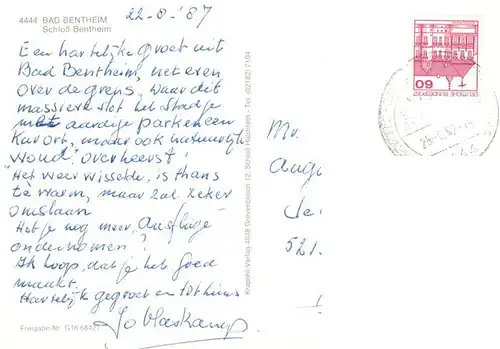 4444 BAD BENTHEIM
Schloß Bentheim
22-8-'87
Een hartelijke groet uit
Bad Bentheim, net even
over de grens, waar dit
massieve slot het stadje
met aardige park en een
Kurort, maar ook natuurlijk
woud" overheerst!
Het weer wisselde, is thans
te warm, maar zal zeker
omslaan
Heb je nog meer "Ausflüge"
ondernomen?
Ik hoop, dat je het goed
maakt.
Hartelijk gegroet en tot thuis
Jo Maskamp
Freigabe-Nr. G16 68427
Krapohl-Verlag 4048 Grevenbroich 12, Schloß Hülchrath - Tel. (02182) 7104
60
DEUTSCHE BUNDESPOST
Mr.
521.